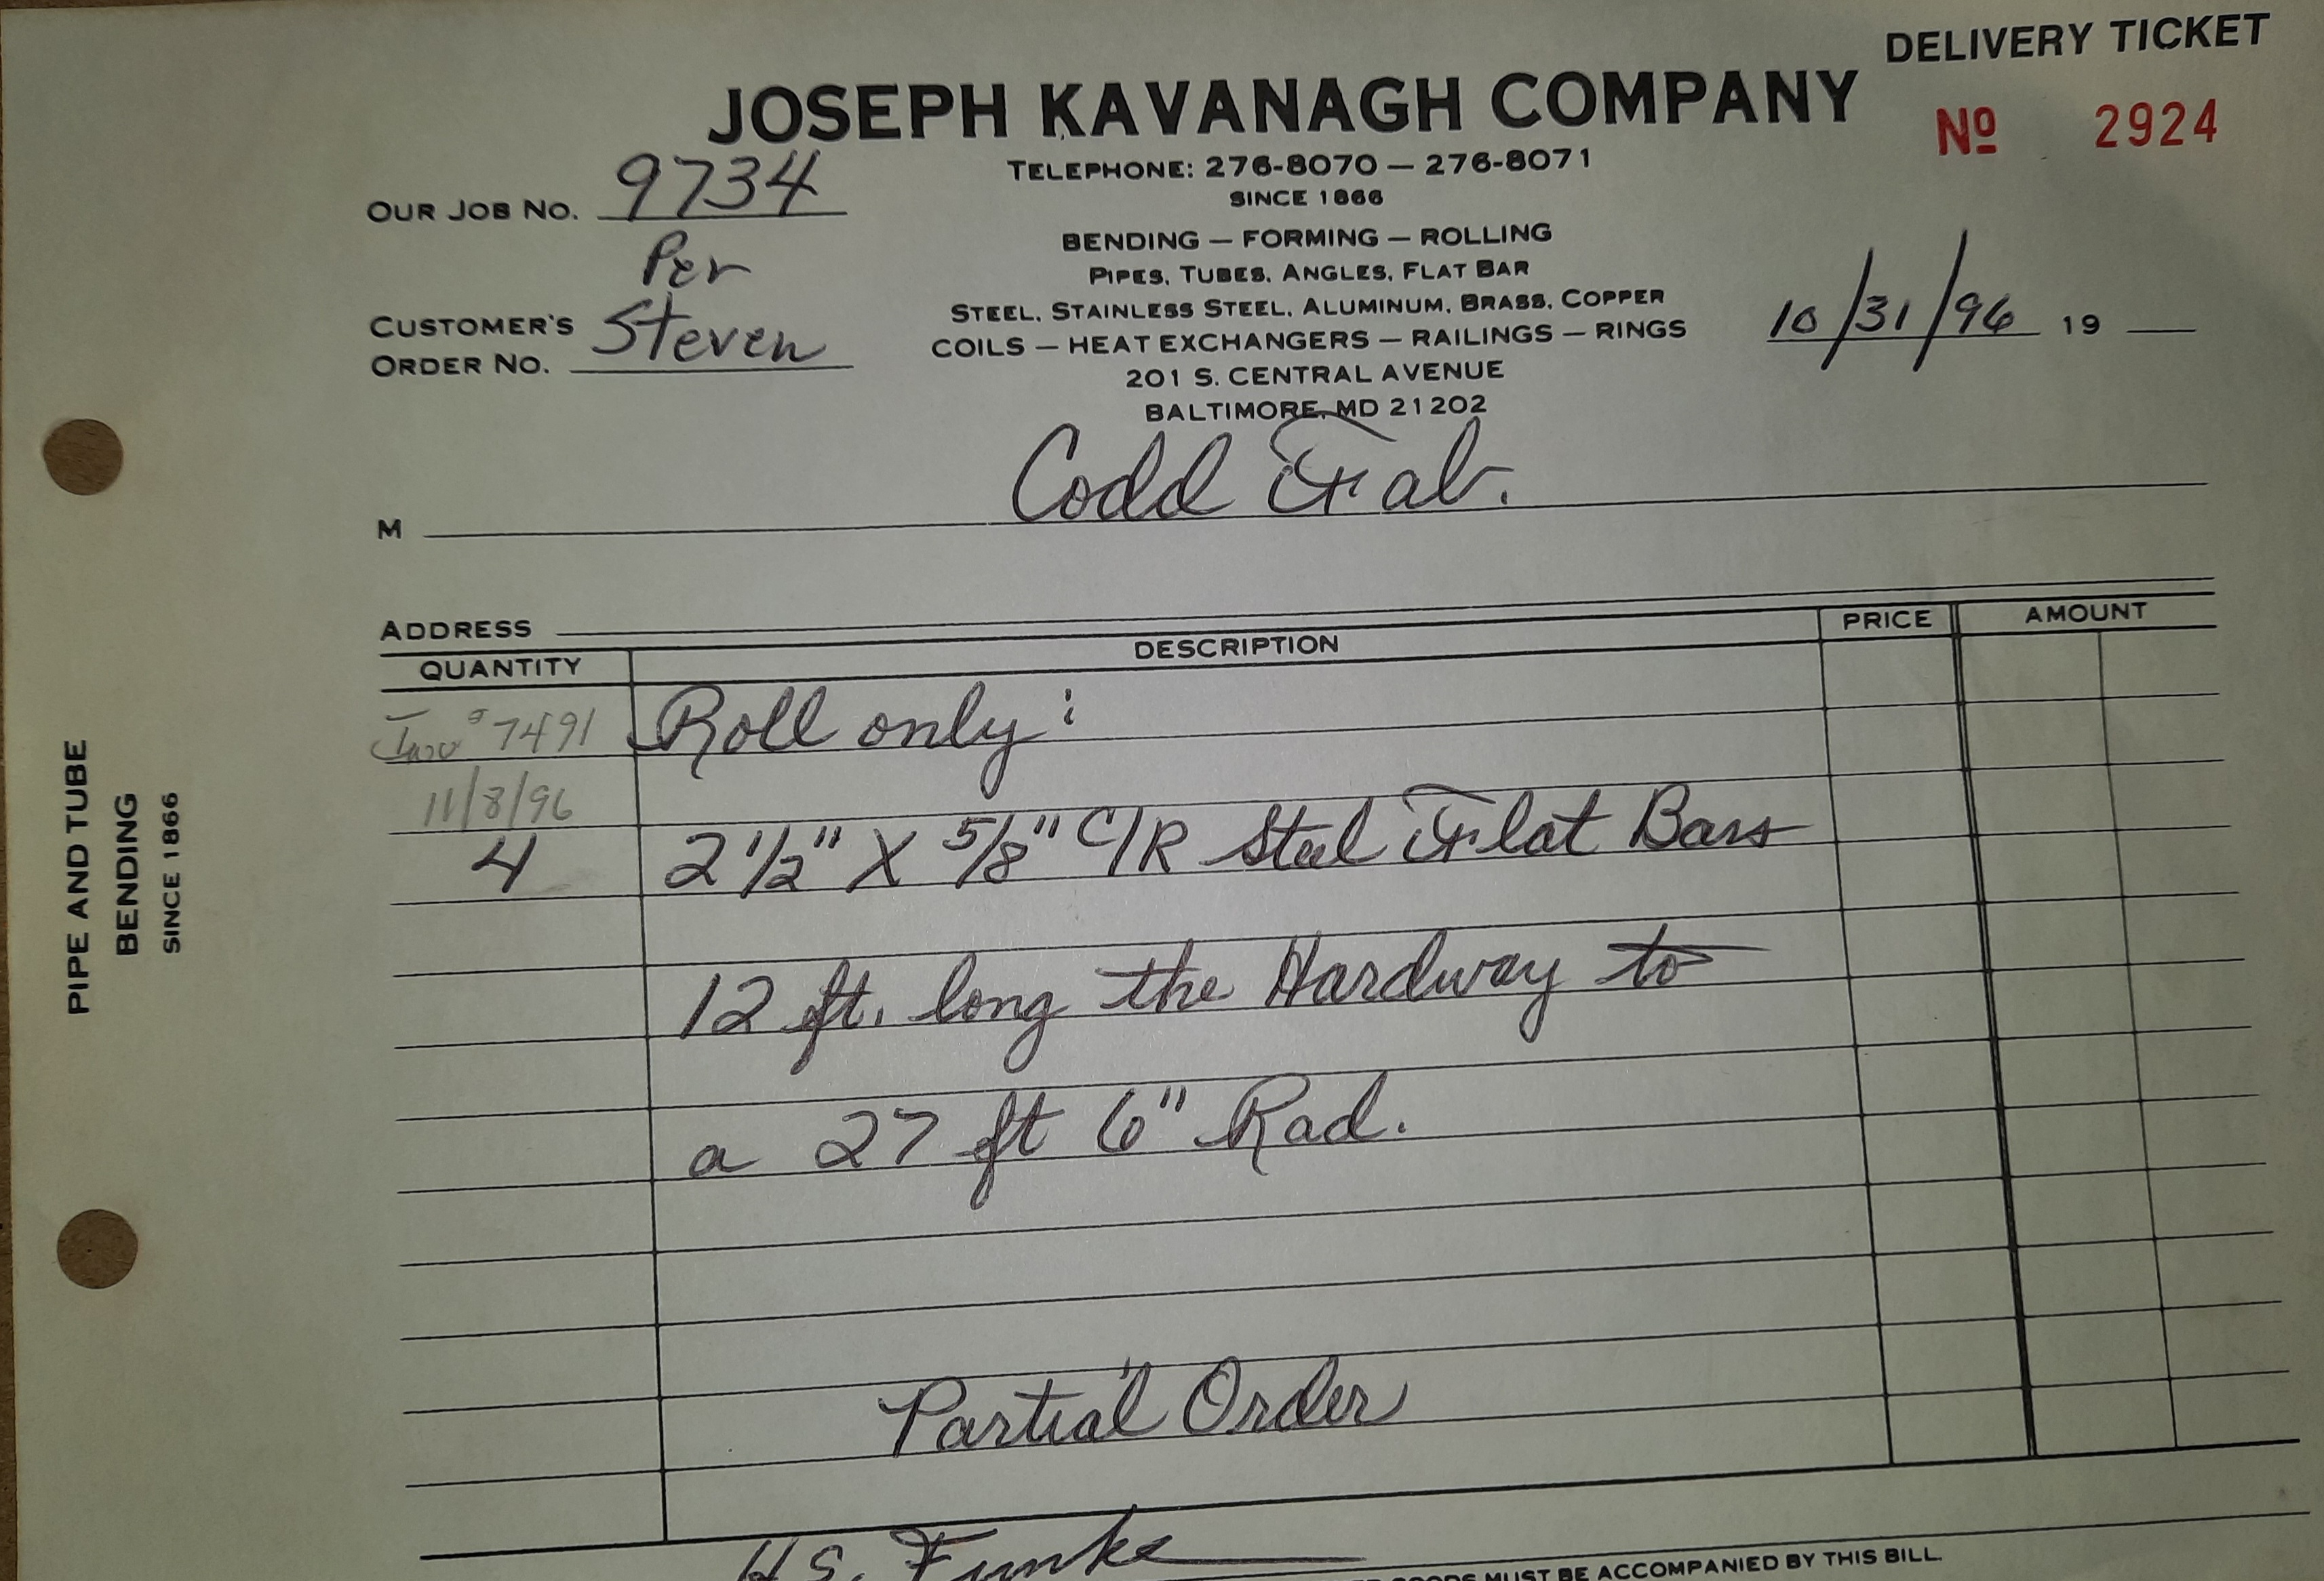 DELIVERY TICKET
JOSEPH KAVANAGH COMPANY
Nº 2924
TELEPHONE: 276-8070 — 276-8071
SINCE 1866
OUR JOB NO. 9734
BENDING — FORMING — ROLLING
PIPES, TUBES, ANGLES, FLAT BAR
STEEL, STAINLESS STEEL, ALUMINUM, BRASS, COPPER
COILS — HEAT EXCHANGERS — RAILINGS — RINGS
201 S. CENTRAL AVENUE
BALTIMORE, MD 21202
Per
CUSTOMER'S Steven
ORDER NO.
10/31/96 19
M Codd Fab.
ADDRESS
QUANTITY DESCRIPTION PRICE AMOUNT
Inv # 7491 Roll only:
11/8/96
4 2 1/2" X 5/8" C/R Steel Flat Bars
12 ft. long the Hardway to
a 27 ft 6" Rad.
Partial Order
H.S. Funke
GOODS MUST BE ACCOMPANIED BY THIS BILL.
PIPE AND TUBE
BENDING
SINCE 1866